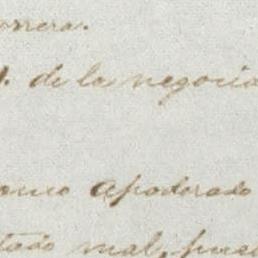 orrera.
de la negocia
como apoderado
tado mal, pues